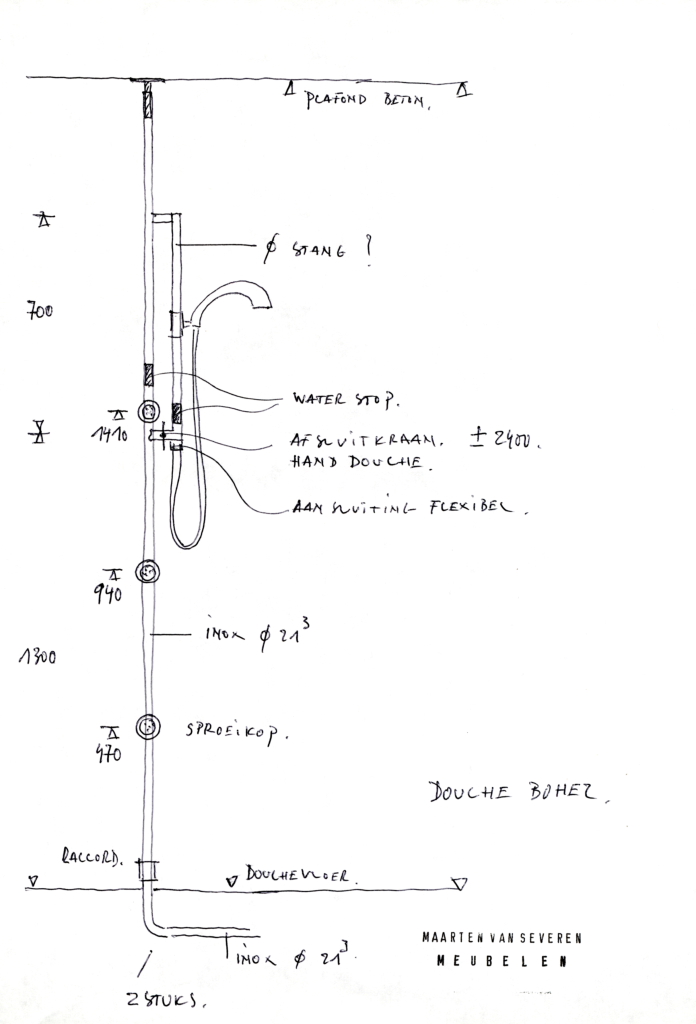 PLAFOND BETON.
ϕ STANG ?
700
WATER STOP.
1410
AFSLUITKRAAN. ± 2400.
HAND DOUCHE.
AANSLUITING FLEXIBEL.
940
INOX ϕ 21³
1300
SPROEIKOP.
470
DOUCHE BOHEZ.
RACCORD.
DOUCHEVLOER.
INOX ϕ 21³.
2 STUKS.
MAARTEN VAN SEVEREN
MEUBELEN